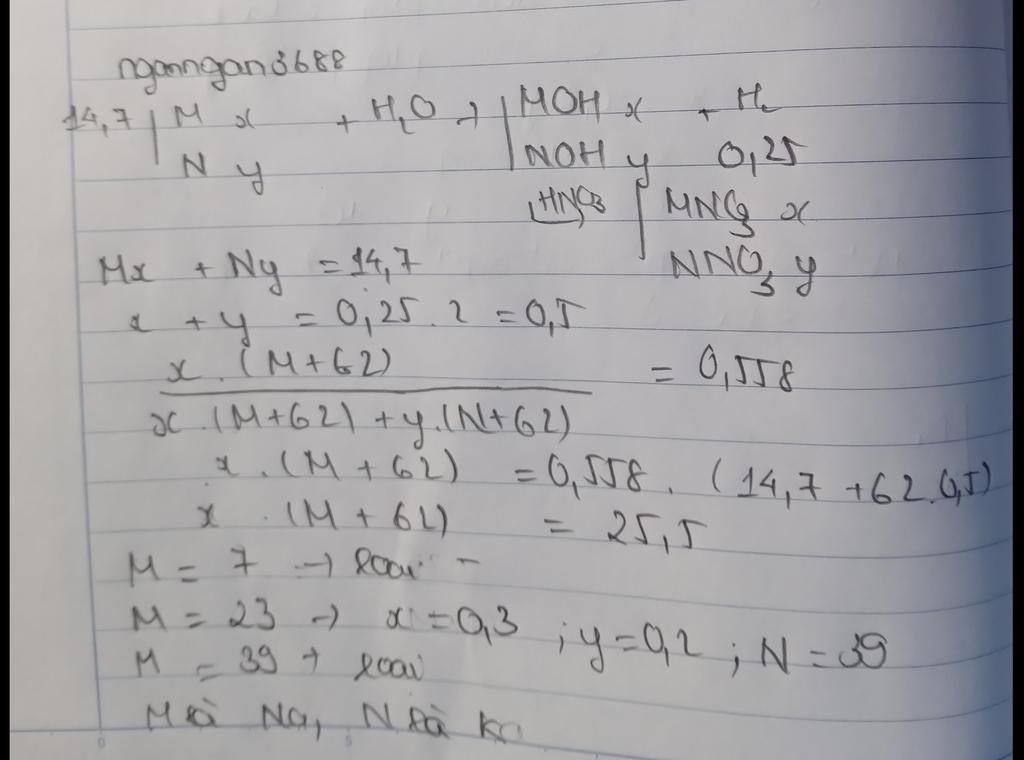 nganngan3688
14,7 | M x + H2O → | MOH x + H2
N y | NOH y 0,25
HNO3 | MNO3 x
NNO3 y
Mx + Ny = 14,7
x + y = 0,25 . 2 = 0,5
x . (M+62) = 0,558
x . (M+62) + y . (N+62)
x . (M + 62) = 0,558 . (14,7 + 62 . 0,5)
x . (M + 62) = 25,5
M = 7 → loại
M = 23 → x = 0,3 ; y = 0,2 ; N = 39
M = 39 → loại
M là Na, N là K